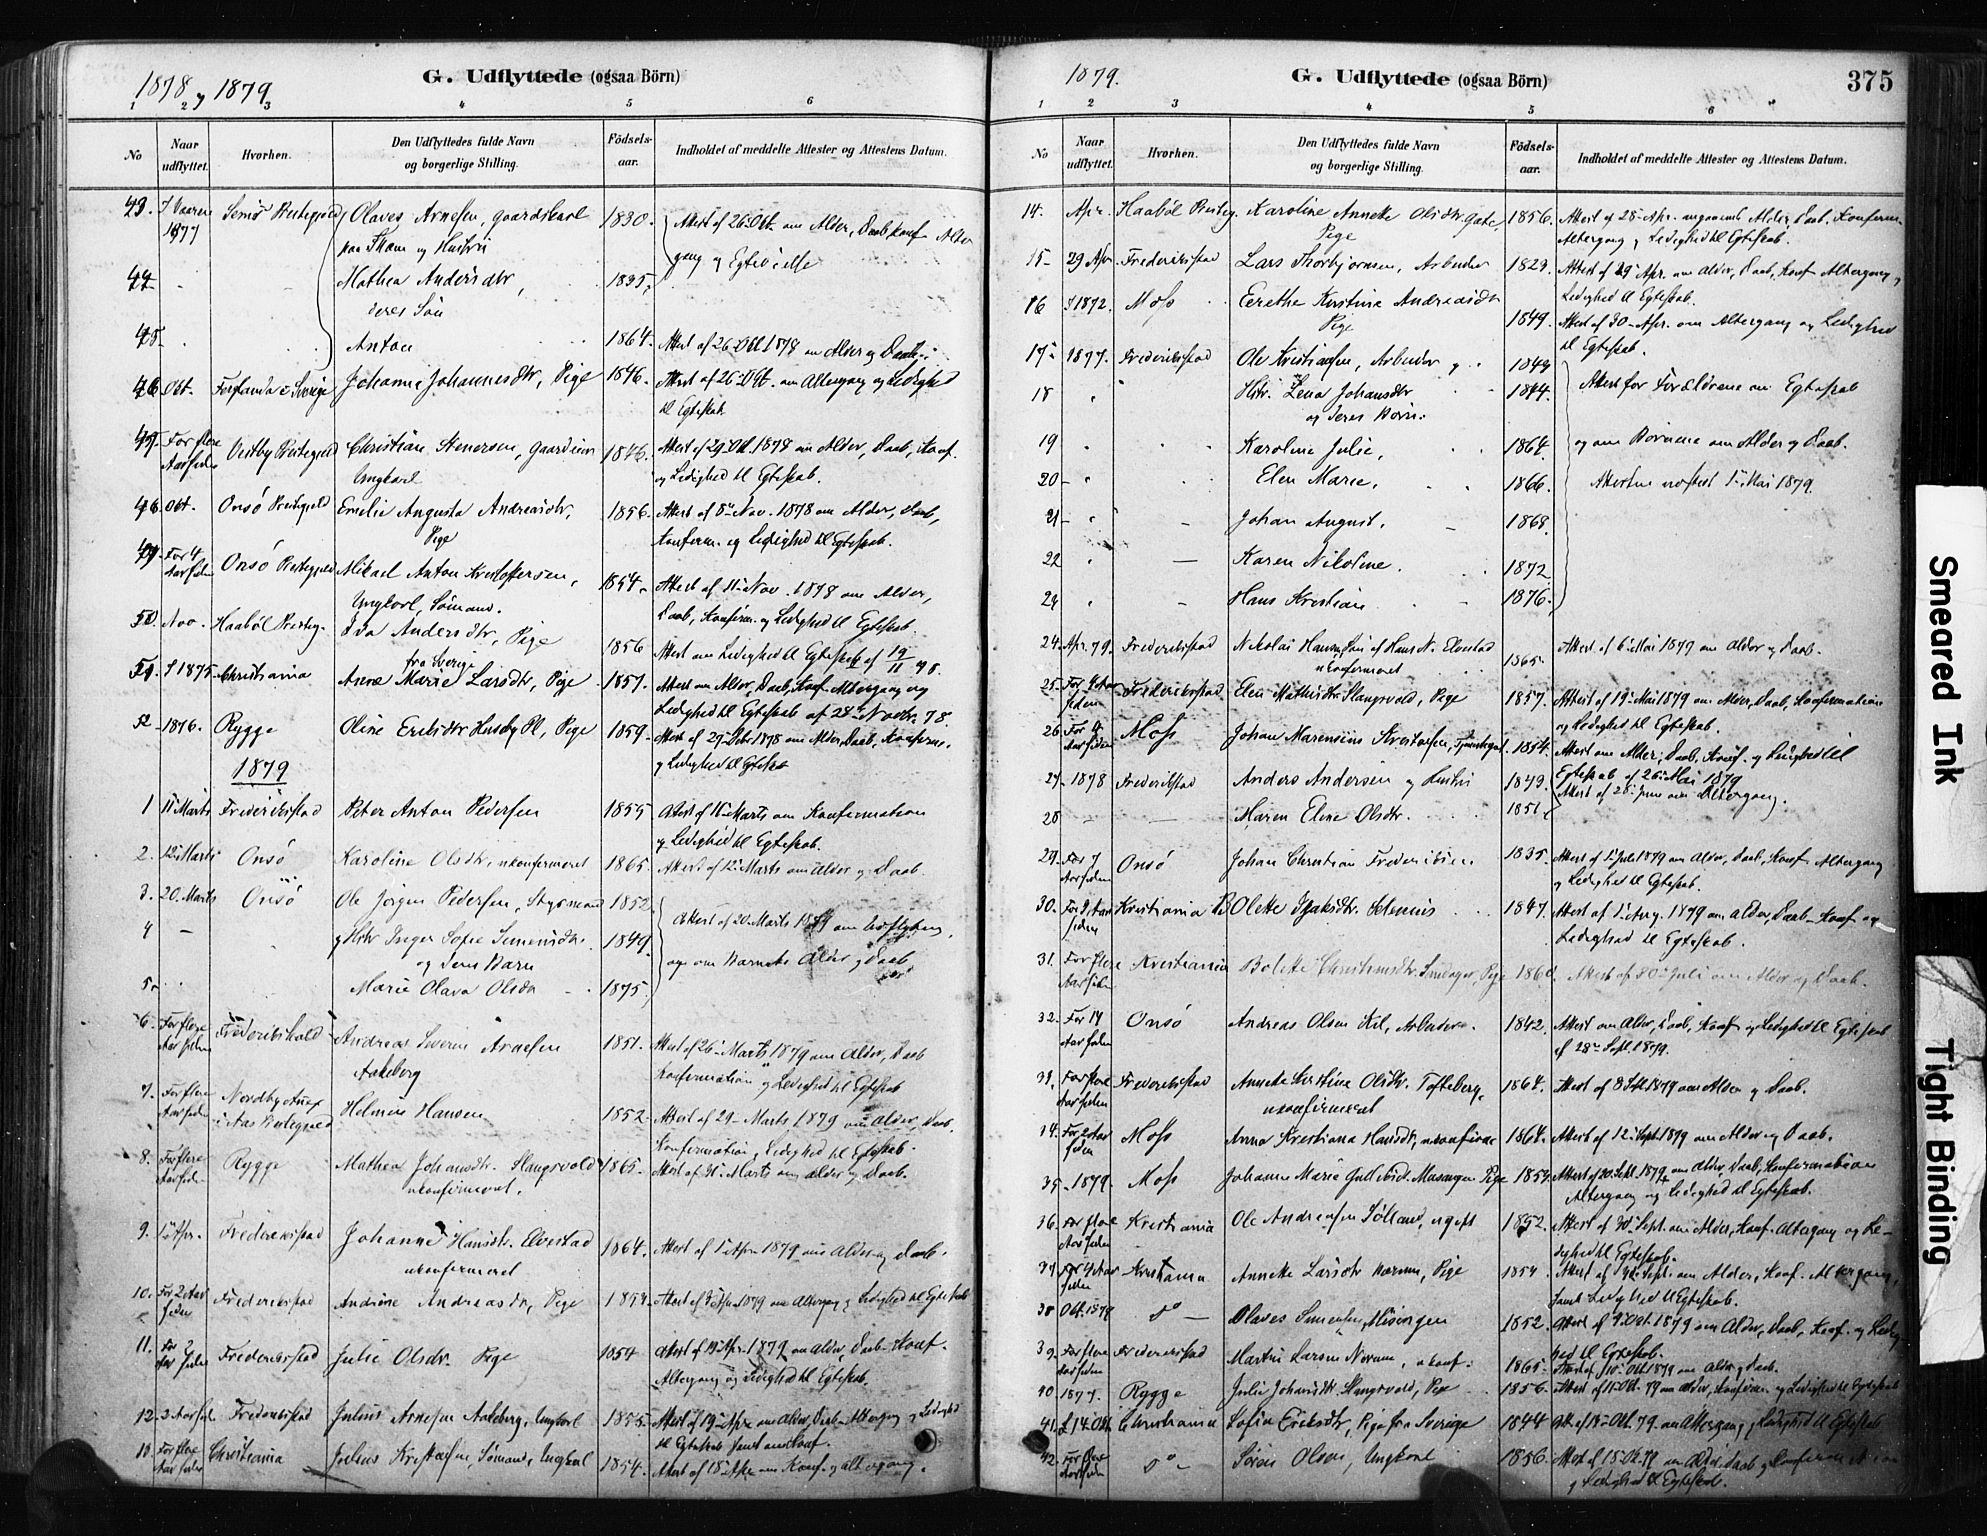 1878 og 1879
G. Udflyttede (ogsaa Börn)
1 2 3 4 5 6
No
Naar udflyttet.
Hvorhen.
Den Udflyttedes fulde Navn og borgerlige Stilling.
Födselsaar.
Indholdet af meddelte Attester og Attestens Datum.
43. I Vaaren 1877 Præstegjeld Olaves Arnesen, Gaardskarl 1830. Attest af 26 Okt. om Alder, Daab, Konf. Altergang og Egtevielse
og Hustru
44 Mathea Andersdtr, 1835,
deres Sön
45. Anton 1864. Attest af 26 Okt 1878 om Alder og Daab
46. Okt. i Sverige Johanne Johannesdtr, Pige 1846. Attest af 26 Okt. om Altergang og Ledighed
til Egteskab
47. For flere Aar siden Vestby Præstegjeld Christian Stenersen, 1846. Attest af 29 Okt. 1878 om Alder, Daab, Konf.
Ungkarl og Ledighed til Egteskab.
48. Okt. Onsö Præstegjeld Emilie Augusta Andreasdtr, 1856. Attest af 8 Nov. 1878 om Alder, Daab,
Pige Konfirm. og Ledighed til Egteskab.
49. For 4 Aar siden Onsö Præstegjeld Mikael Anton Kristoffersen, 1854. Attest af 11 Nov. 1878 om Alder,
Ungkarl, Sömand. Daab, Konfirm. og Ledighed til Egteskab.
50. Nov. Haaböl Præsteg. Ida Andersdtr, Pige 1856 Attest om Ledighed til Egteskab af 19/11 78.
fra Sverige
51. I 1875 Christiania Anne Marie Larsdtr, Pige 1857. Attest om Alder, Daab, Konf. Altergang og
Ledighed til Egteskab af 28 Novbr. 78.
52 1876. Rygge Oline Eriksdtr Huseby Pl, Pige 1859 Attest af 27 Debr 1878 om Alder, Daab, Konfirm.
og Ledighed til Egteskab
1879
1 11 Marts Frederikstad Peter Anton Pedersen 1855 Attest af 11 Marts om Konfirmation
og Ledighed til Egteskab.
2. 12 Marts Onsö Karoline Olsdtr, ukonfirmeret 1865. Attest af 12 Marts om Alder og Daab.
3. 20 Marts Onsö Ole Jörgen Pedersen, Styrmand 1852. Attest af 20 Marts 1879 om Udflytning,
4 og Hstr Inger Sofie Simensdtr. 1849. og om Barnets Alder og Daab
og deres Barn
5. Marie Olava Olsdtr 1875.
6. For flere Aar siden Frederikshald Andreas Severin Arnesen 1851. Attest af 26 Marts 1879 om Alder, Daab
Aakeberg Konfirmation og Ledighed til Egteskab
7. For flere Aar siden Nordby Anex i Aas Præstegjeld Helmin Hansen 1852. Attest af 29 Marts 1879 om Alder, Daab,
Konfirmation og Ledighed til Egteskab.
8. For flere Aar siden Rygge Mathea Johansdtr. Slangsvold 1865. Attest af 31 Marts om Alder og Daab.
ukonfirmeret.
9. 1 Apr. Frederikstad Johanne Hansdtr. Elvestad 1864. Attest af 1 Apr. 1879 om Alder og Daab.
ukonfirmeret
10. For 2 Aar siden Frederikstad Andrine Andreasdtr, Pige Attest af Apr. 1879 om Altergang og Ledighed til Egteskab
11. For Aar siden Frederikstad Julie Olsdtr. Pige 1854 Attest af 19 Apr. 1879 om Alder, Daab, Konf.
Altergang og Ledighed til Egteskab.
12. 2 Aar sid. Frederikstad Julius Arnesen Aakeberg, Ungkarl 1855. Attest af 19 Apr. om Alder, Daab, Altergang og Ledighed
til Egteskab samt om Konf.
13. For flere Aar siden Christiania Julius Kristiansen, Sömand, Ungkarl 1854. Attest af 18 Apr. om Konf. og Altergang.
1879.
G. Udflyttede (ogsaa Börn)
375
1 2 3 4 5 6
No
Naar udflyttet.
Hvorhen.
Den Udflyttedes fulde Navn og borgerlige Stilling.
Födselsaar.
Indholdet af meddelte Attester og Attestens Datum.
14. Apr. Haaböl Præsteg. Karoline Annette Olsdtr. 1856. Attest af 28 Apr. angaaende Alder, Daab, Konfirm.
Pige Altergang og Ledighed til Egteskab.
15 29 Apr. Frederikstad Lars Thorbjornsen, Arbeider 1823. Attest af 29 Apr. om Alder, Daab, Konf. Altergang og
Ledighed til Egteskab.
16 I 1872. Moss Kristine Andreasdtr 1849. Attest af 30 Apr. om Altergang og Ledighed
Pige til Egteskab.
17 1877. Frederikstad Ole Kristiansen, Arbeider og 1849 Attest for Forældrene om Egteskab
18 Hstr. Lena Johansdtr 1844.
og deres Börn:
19 Karoline Julie, 1864. og om Börnene om Alder og Daab.
20 Elen Marie, 1866. Attesten 1 Mai 1879.
21 Johan August, 1868.
22 Karen Nikoline. 1872.
23 Hans Kristian 1876.
24. Apr. 79. Frederikstad Nikolai Hansen Sön af Hans N. Elvestad 1865. Attest af 6 Mai 1879 om Alder og Daab.
ukonfirmeret
25. For Aar siden Frederikstad Elen Mathisdtr. Slangsvold, Pige 1857. Attest af 19 Mai 1879 om Alder, Daab, Konfirmation
og Ledighed til Egteskab.
26. For Aar siden Moss Johan Marensius Kristiansen, 1854. Attest om Alder, Daab, Konf. og Ledighed til
Egteskab af 26 Mai 1879
27 1878 Frederikstad Anders Andersen og Hustru 1849. Attest af 28 Juni om Altergang.
28 Maren Eline Olsdtr. 1851,
29. For 7 Aar siden Onsö Johan Christian Frederiksen 1835. Attest af 1 Juli 1879 om Alder, Daab, Konf. Altergang
og Ledighed til Egteskab.
30. For 2 Aar siden Kristiania Olette 1847. Attest af 1 Aug. 1879 om Alder, Daab, Konf. og
Ledighed til Egteskab.
31. For flere Aar siden Kristiania Bolette Pige Attest af 30 Juli om Alder og Daab.
32. For 14 Aar siden Onsö Andreas Olsen Kil, Arbeider. 1842. Attest om Alder, Daab, Konf. og Ledighed til Egteskab
af 28 Sept. 1879.
33. For flere Aar siden Frederikstad Annette Kristine Olsdtr. Tofteberg, 1864. Attest af 8 Sept. 1879 om Alder og Daab.
ukonfirmeret
34. For 2 Aar siden Moss Anna Kristiana Hansdtr, ukonfirm. 1864. Attest af 12 Sept. 1879 om Alder og Daab.
35 1879. Moss Johanne Marie Pige 1859 Attest af 20 Sept. 1879 om Alder, Daab, Konfirmation
Altergang og Ledighed til Egteskab.
36. For flere Aar siden Kristiania Ole Andreasen ugift 1852. Attest af 30 Sept. om Alder, Konf. Altergang og Ledighed til Egteskab.
37 For 4 Aar siden Kristiania Annette Larsdtr Pige 1854 Attest af Sept. om Alder, Konf. Altergang,
samt Ledighed til Egteskab.
38 Okt. 1879 do Olaves Simensen, Missingen 1852. Attest af 9 Okt. 1879 om Alder, Daab, Konf. og Ledighed til Egteskab.
39. For flere Aar siden Frederikstad Martin Larsen Norum, ukonf: 1865. Attest af 10 Okt. 1879 om Alder og Daab.
40 1877. Rygge Julie Johansdtr Slangsvold, Pige 1856. Attest af 11 Okt. 79 om Alder, Konfirm. og Ledighed til Egteskab
41. 14 Okt. Christiania Sofia Eriksdtr, Pige fra Sverige 1844 Att. af 14 Okt. 79. om Altergang og Ledighed til Egteskab
42. For flere Aar siden do Sören Olsen, Ungkarl 1856. Attest af 15 Okt. 79 om Alder, Daab og Konfirmation
og Ledighed til Egteskab.
Smeared Ink
Tight Binding